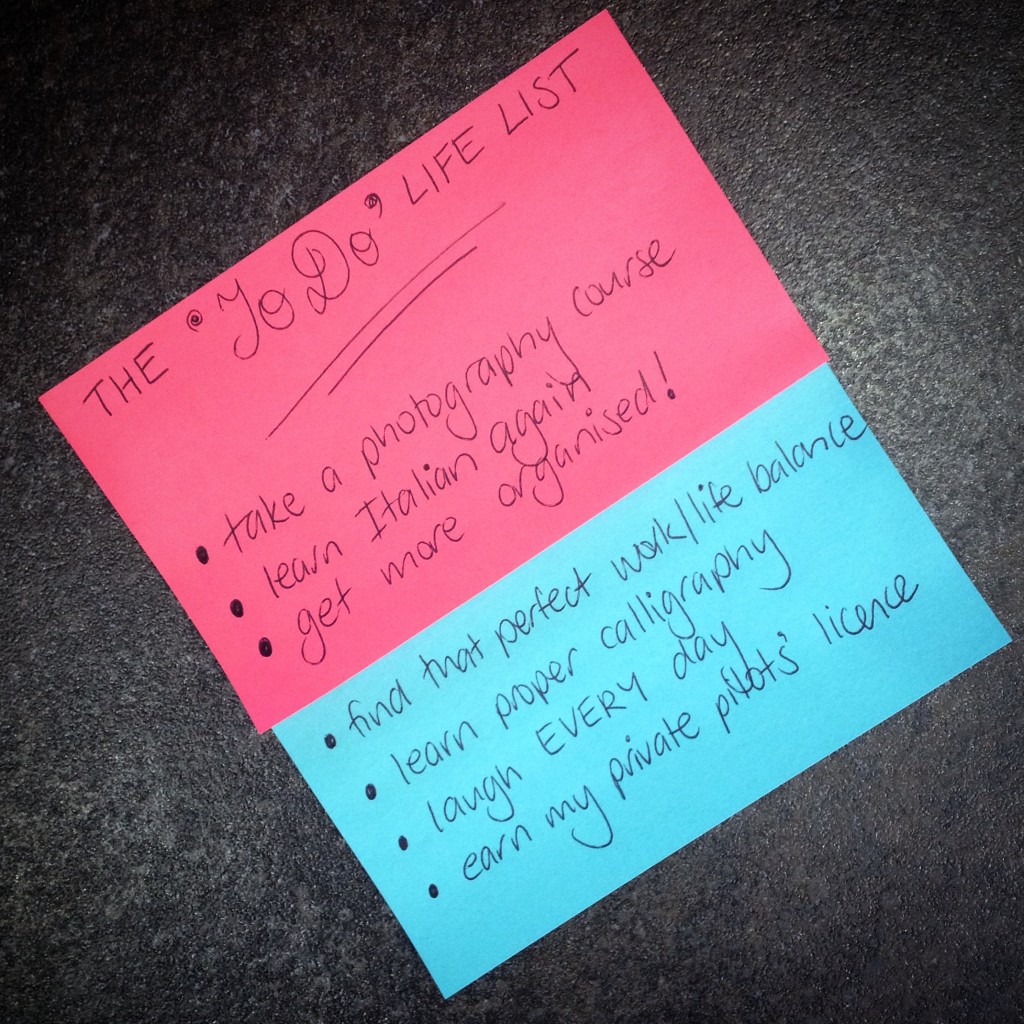 THE 'To Do' LIFE LIST
• take a photography course
• learn Italian again
• get more organised!
• find that perfect work/life balance
• learn proper calligraphy
• laugh EVERY day
• earn my private pilots' licence